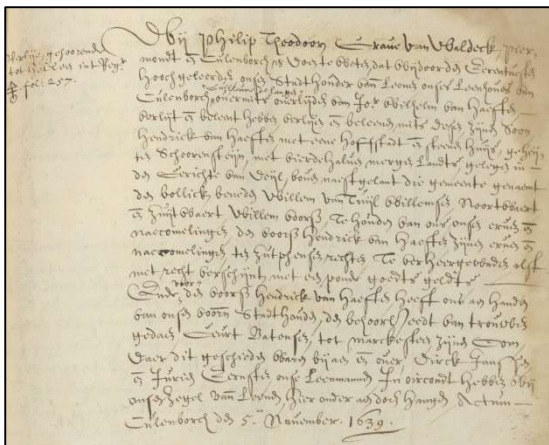 Verlije, gehoorende
tot Hellen int Reg.r
fol: 257.
Wij Philip Theodoor Grave van Waldeck, Pier-
mondt en Culenborch etc. Doen te weten, dat wij door den Erentvesten
Hoochgeleerden onsen Stadthouder van Leenen onser Leenhoven van
Culenborch, overmits overlijden van Jor. Wilhelm van Haeften
verlijt en beleent hebben verlijen en beleenen, mits desen zijnen Soon
Hendrick van Haeften met eene Hofstadt en steenen huijs, geheij-
ten Schoorensteijn, met vierdehalven mergen Landts, gelegen in
den Gerichte van Deijl, boven naestgelant die gemeente genaemt
den bollick beneden Willem van Tuijl Willemsen Noortwaert
en Zuijtwaert Willem voorsz. Te houden van ons onsen erven en
naecomelingen den voorsz Hendrick van Haeften zijnen erven en
naecomelingen ten Zutphensen rechten Te verheergewaden alst
met recht verschijnt, met een pondt goedts geldts
Ende den voorsz Hendrick van Haeften heeft ons aen handen
van onsen voorn Stadthouder, den behoorl. eedt van trouwen
gedaen Evert Batensen, tot
Daer dit geschieden waren bij aen en over, Dirck Janssen
en Jurien Ernsten onse Leenmannen In oircondt hebben wij
onsen Zegel van Leenen hier onder aen doen hangen Actum
Culenborch den 5.en November. 1639.